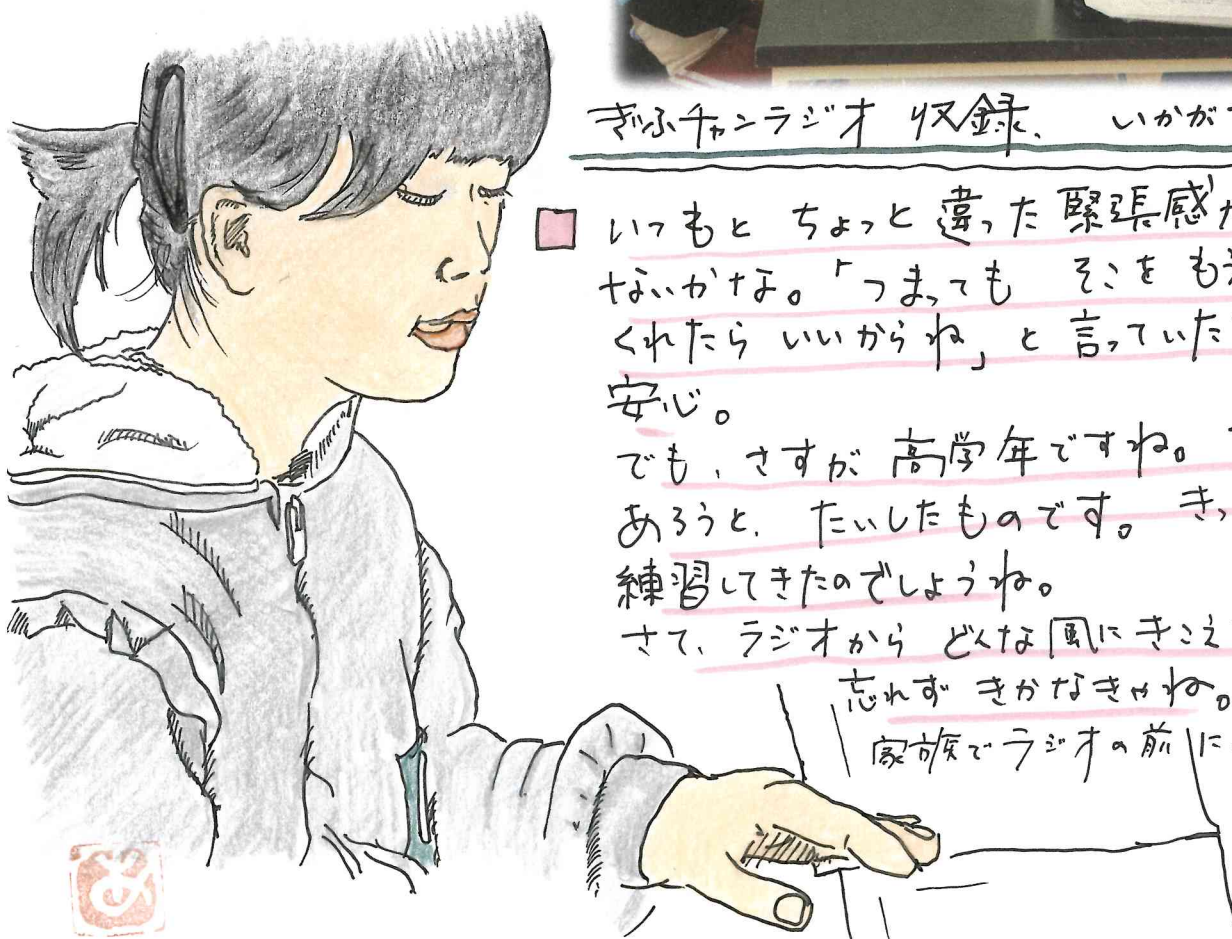 ぎふチャンラジオ 収録、 いかがで
いつもと ちょっと 違った 緊張感が
ないかな。「つまっても そこを も
くれたら いいからね」と 言っていた
安心。
でも、さすが 高学年ですね。
あろうと、たいしたものです。きっ
練習してきたのでしょうね。
さて、ラジオから どんな風に きこえ
忘れず きかなきゃね。
家族でラジオの前に
あ